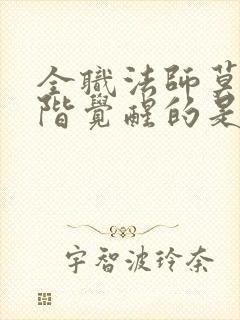 全職法師莫
階覺醒的是
宇智波玲奈